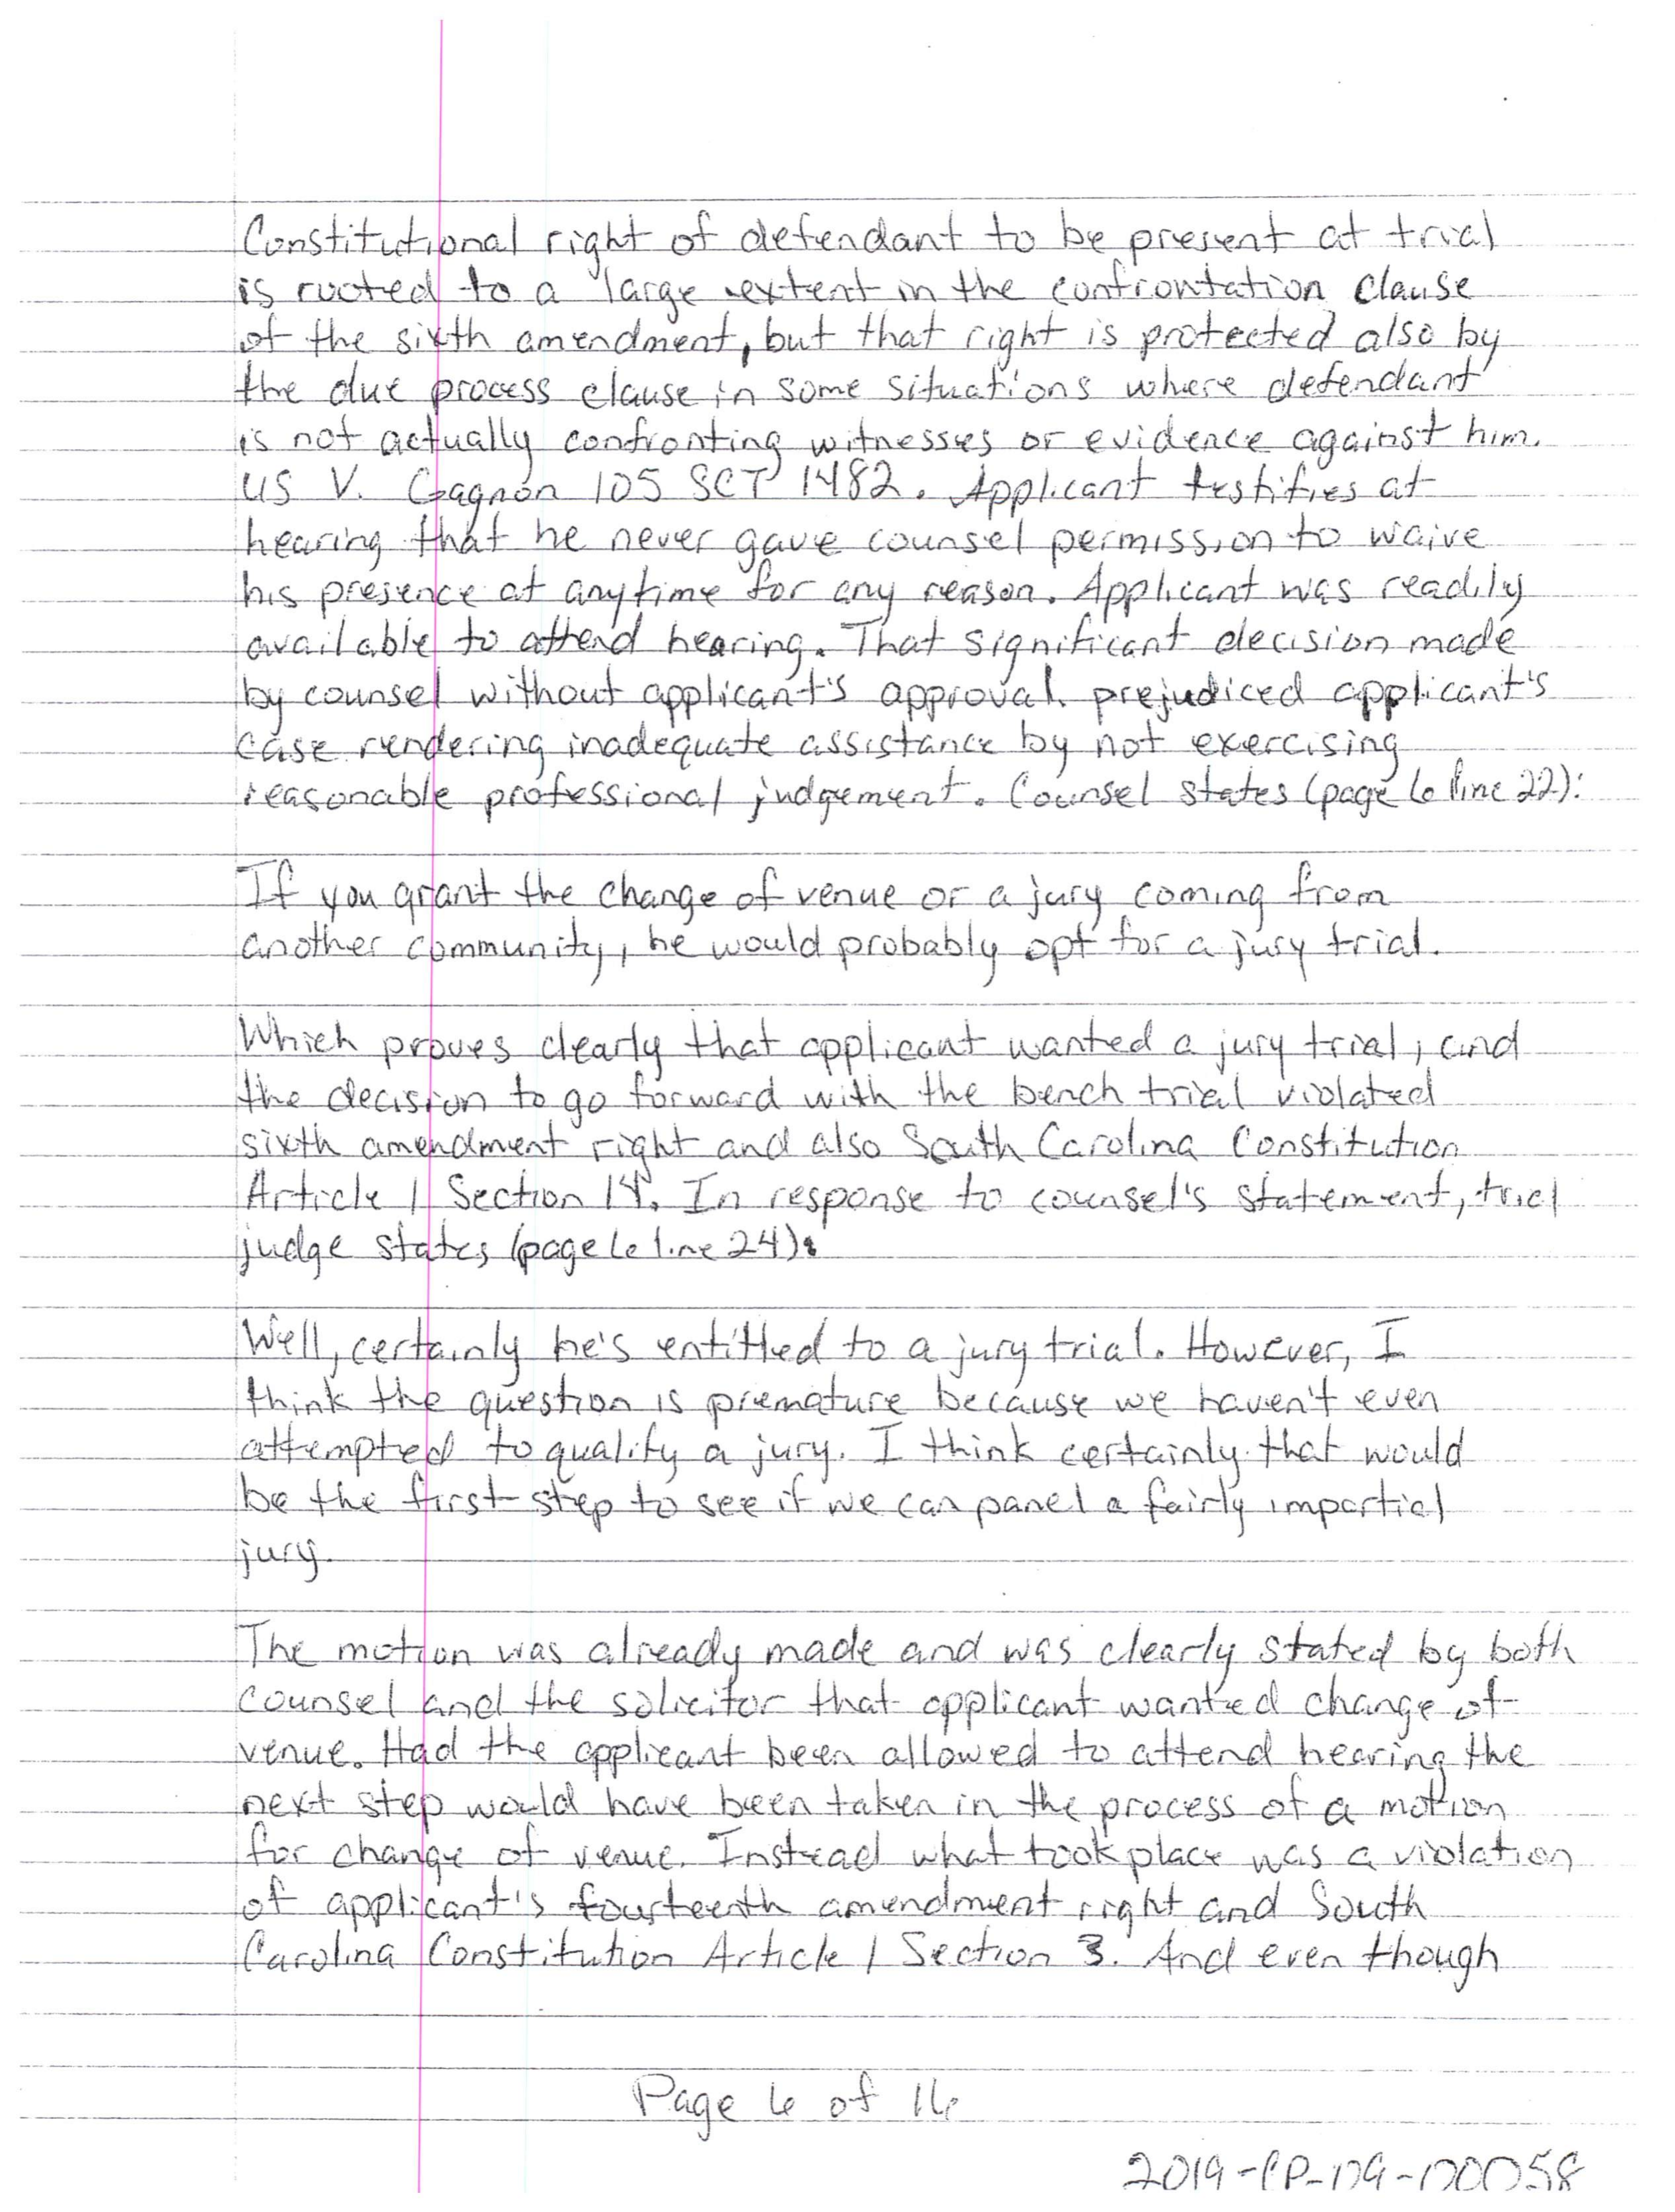 Constitutional right of defendant to be present at trial
is rooted to a large extent in the confrontation clause
of the sixth amendment, but that right is protected also by
the due process clause in some situations where defendant
is not actually confronting witnesses or evidence against him.
US V. Gagnon 105 SCT 1482. Applicant testifies at
hearing that he never gave counsel permission to waive
his presence at anytime for any reason. Applicant was readily
available to attend hearing. That significant decision made
by counsel without applicant's approval prejudiced applicant's
case rendering inadequate assistance by not exercising
reasonable professional judgement. Counsel states (page 6 line 22):
If you grant the change of venue or a jury coming from
another community, he would probably opt for a jury trial.
Which proves clearly that applicant wanted a jury trial, and
the decision to go forward with the bench trial violated
sixth amendment right and also South Carolina Constitution
Article 1 Section 14. In response to counsel's statement, trial
judge states (page 6 line 24):
Well, certainly he's entitled to a jury trial. However, I
think the question is premature because we haven't even
attempted to qualify a jury. I think certainly that would
be the first step to see if we can panel a fairly impartial
jury.
The motion was already made and was clearly stated by both
counsel and the solicitor that applicant wanted change of
venue. Had the applicant been allowed to attend hearing the
next step would have been taken in the process of a motion
for change of venue. Instead what took place was a violation
of applicant's fourteenth amendment right and South
Carolina Constitution Article 1 Section 3. And even though
Page 6 of 16
2019-CP-09-00058